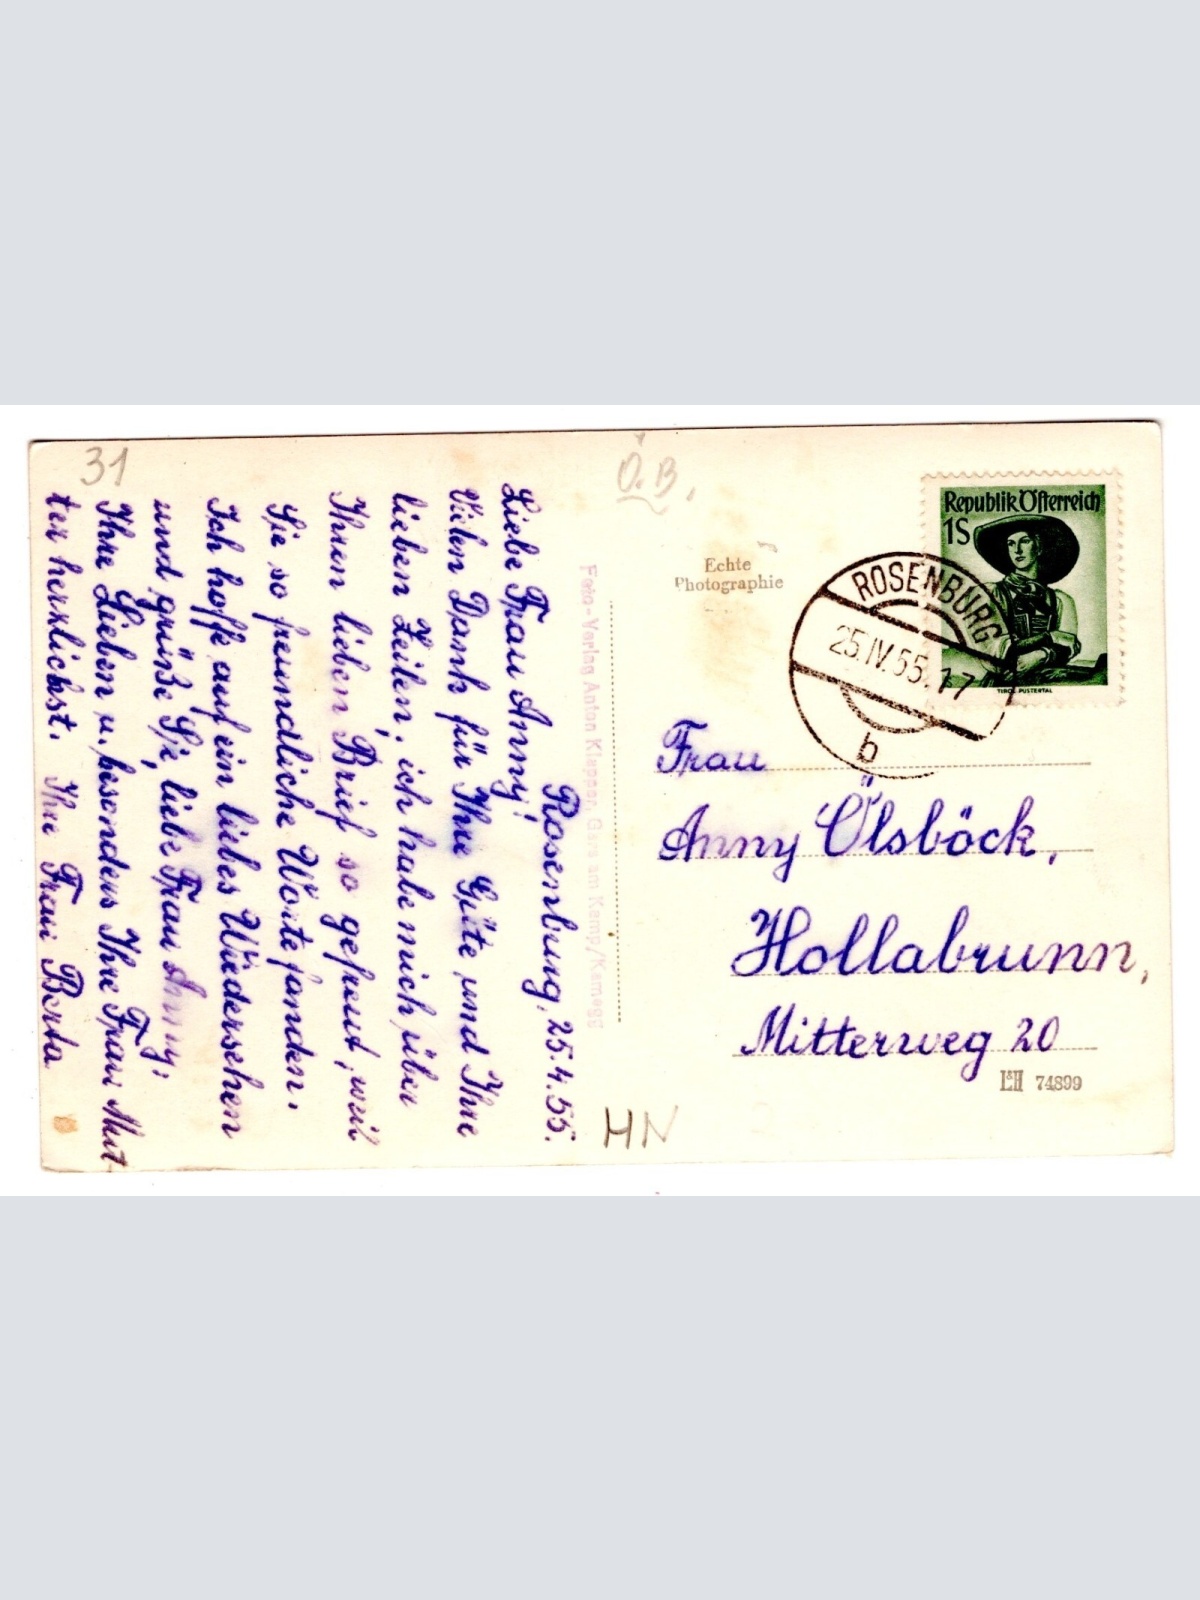 31
Ö.B.
Rosenburg, 25.4.55.
Liebe Frau Anny!
Vielen Dank für Ihre Güte und Ihre
lieben Zeilen, ich habe mich über
Ihren lieben Brief so gefreut, weil
Sie so freundliche Worte fanden.
Ich hoffe auf ein liebes Wiedersehen
und grüße Sie, liebe Frau Anny,
Ihre Lieben u. besonders Ihre Frau Mut
ter herzlichst. Ihre Frau Berta
Foto-Verlag Anton Klepper, Gars am Kamp/Kamegg
Echte
Photographie
Republik Österreich
1S
TIROL PUSTERTAL
ROSENBURG
25.IV.55.17
b
Frau
Anny Ölsböck,
Hollabrunn,
Mitterweg 20
L&H 74899
HN